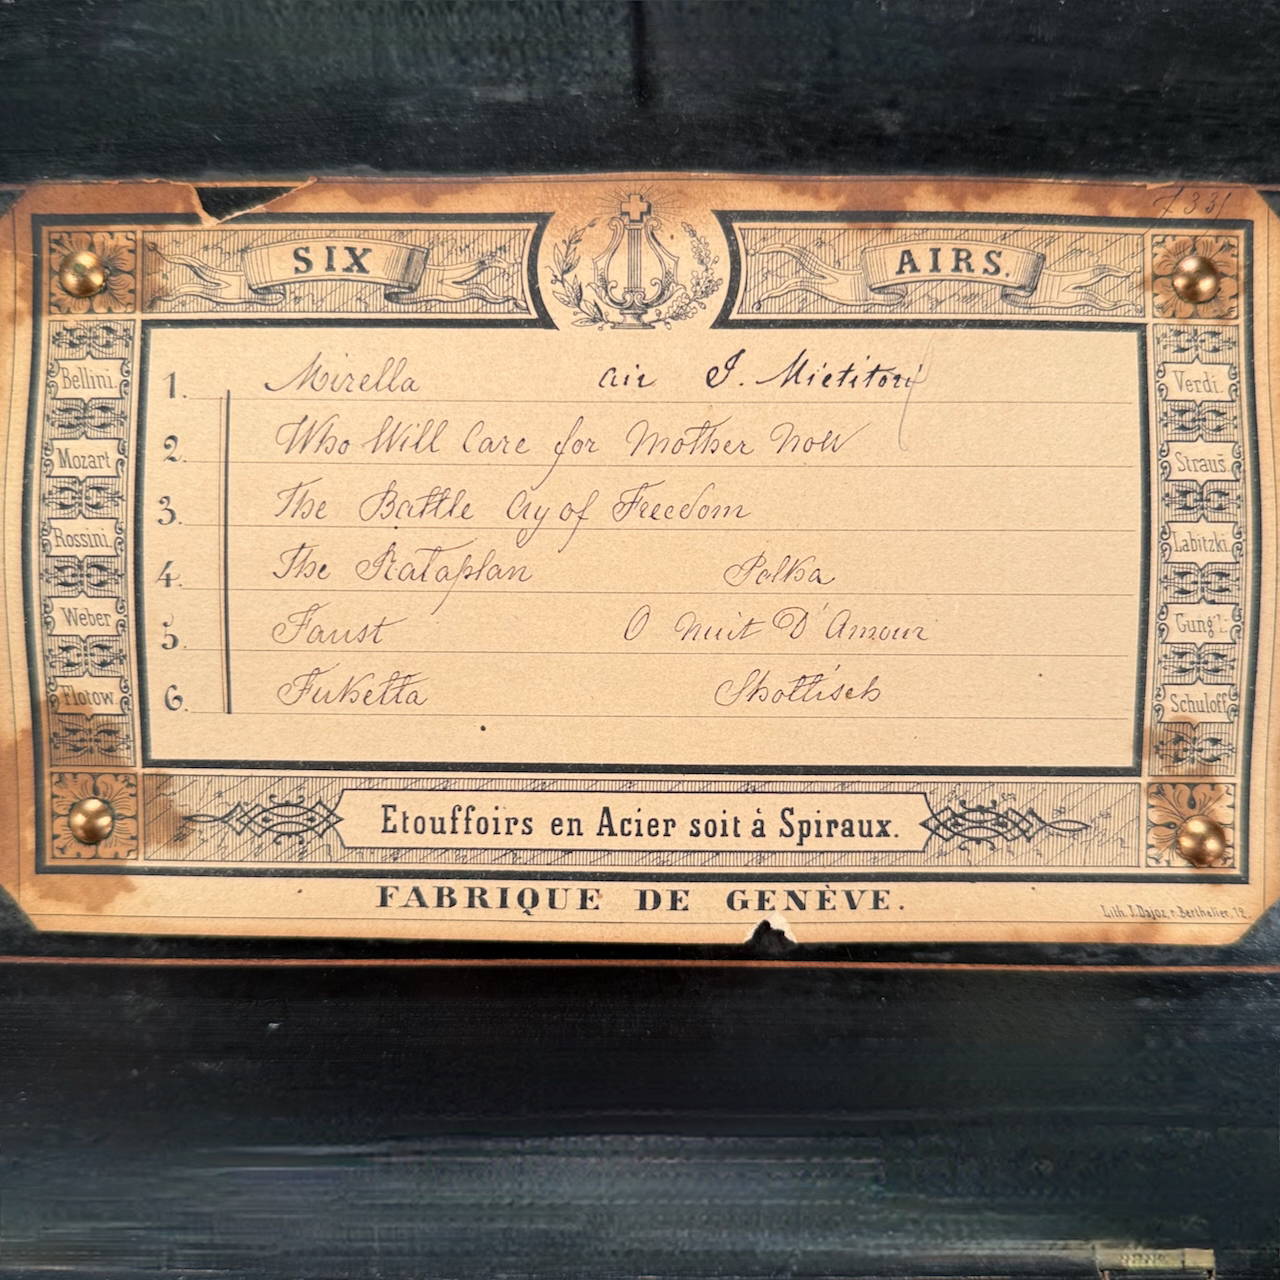 733
SIX AIRS.
Bellini.
Mozart
Rossini.
Weber
Flotow
1. Mirella air I. Mietitori
2. Who Will Care for Mother Now
3. The Battle Cry of Freedom
4. The Rataplan Polka
5. Faust O nuit D'Amour
6. Fuketta Shottisch
Verdi.
Strauss.
Labitzki.
Gung'l.
Schuloff
Etouffoirs en Acier soit à Spiraux.
FABRIQUE DE GENÈVE.
Lith. J. Dajoz, r. Berthelier, 12.